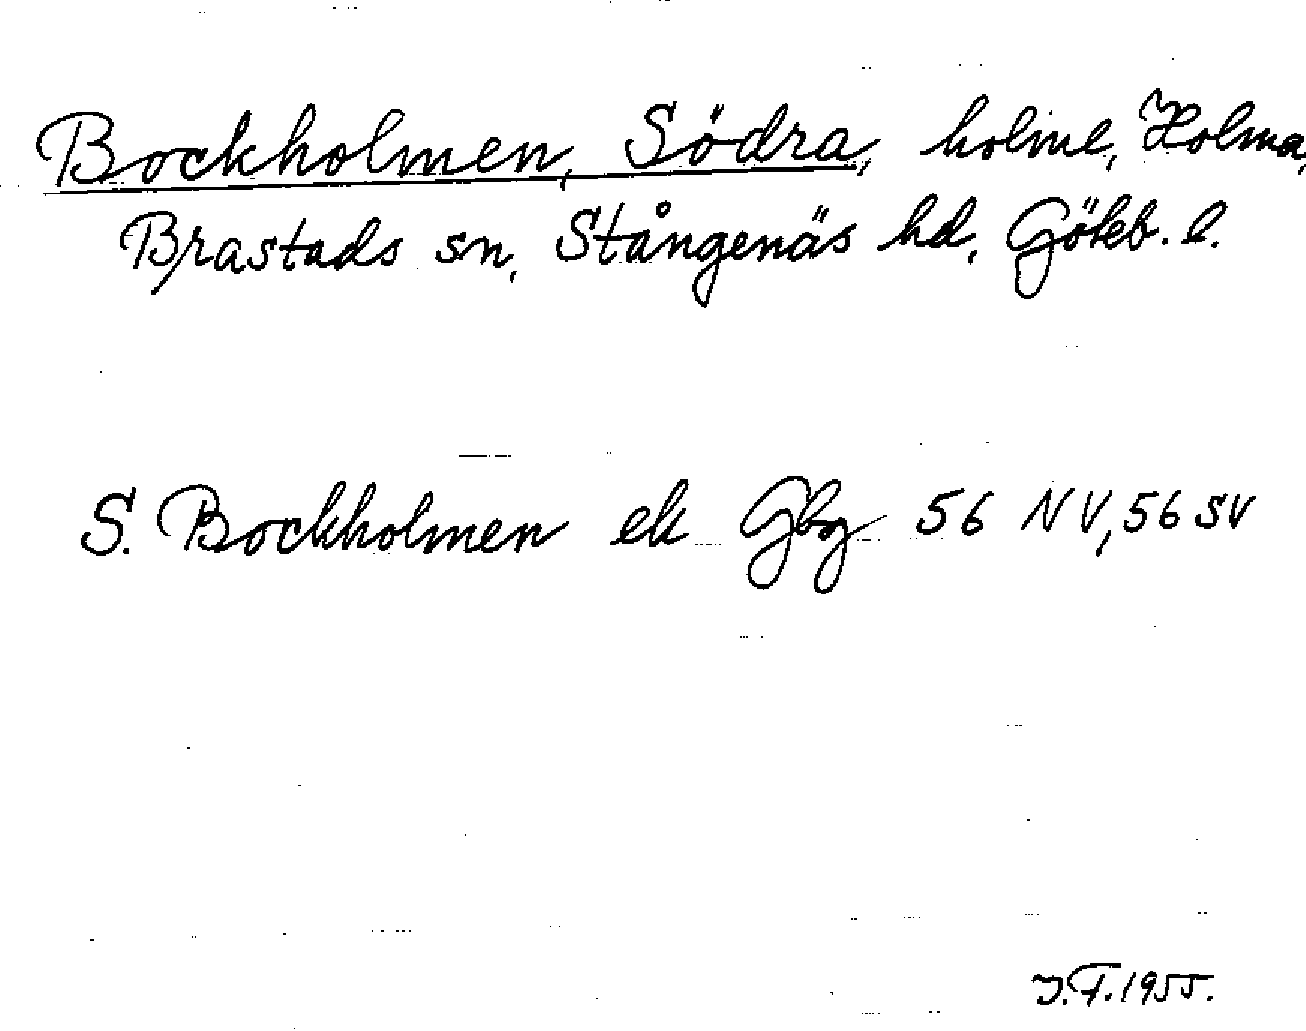 Bockholmen, Södra, holme, Holma,
Brastads sn, Stångenäs hd, Göteb. l.
S. Bockholmen ek Gbg 56 NV, 56 SV
J.F. 1955.